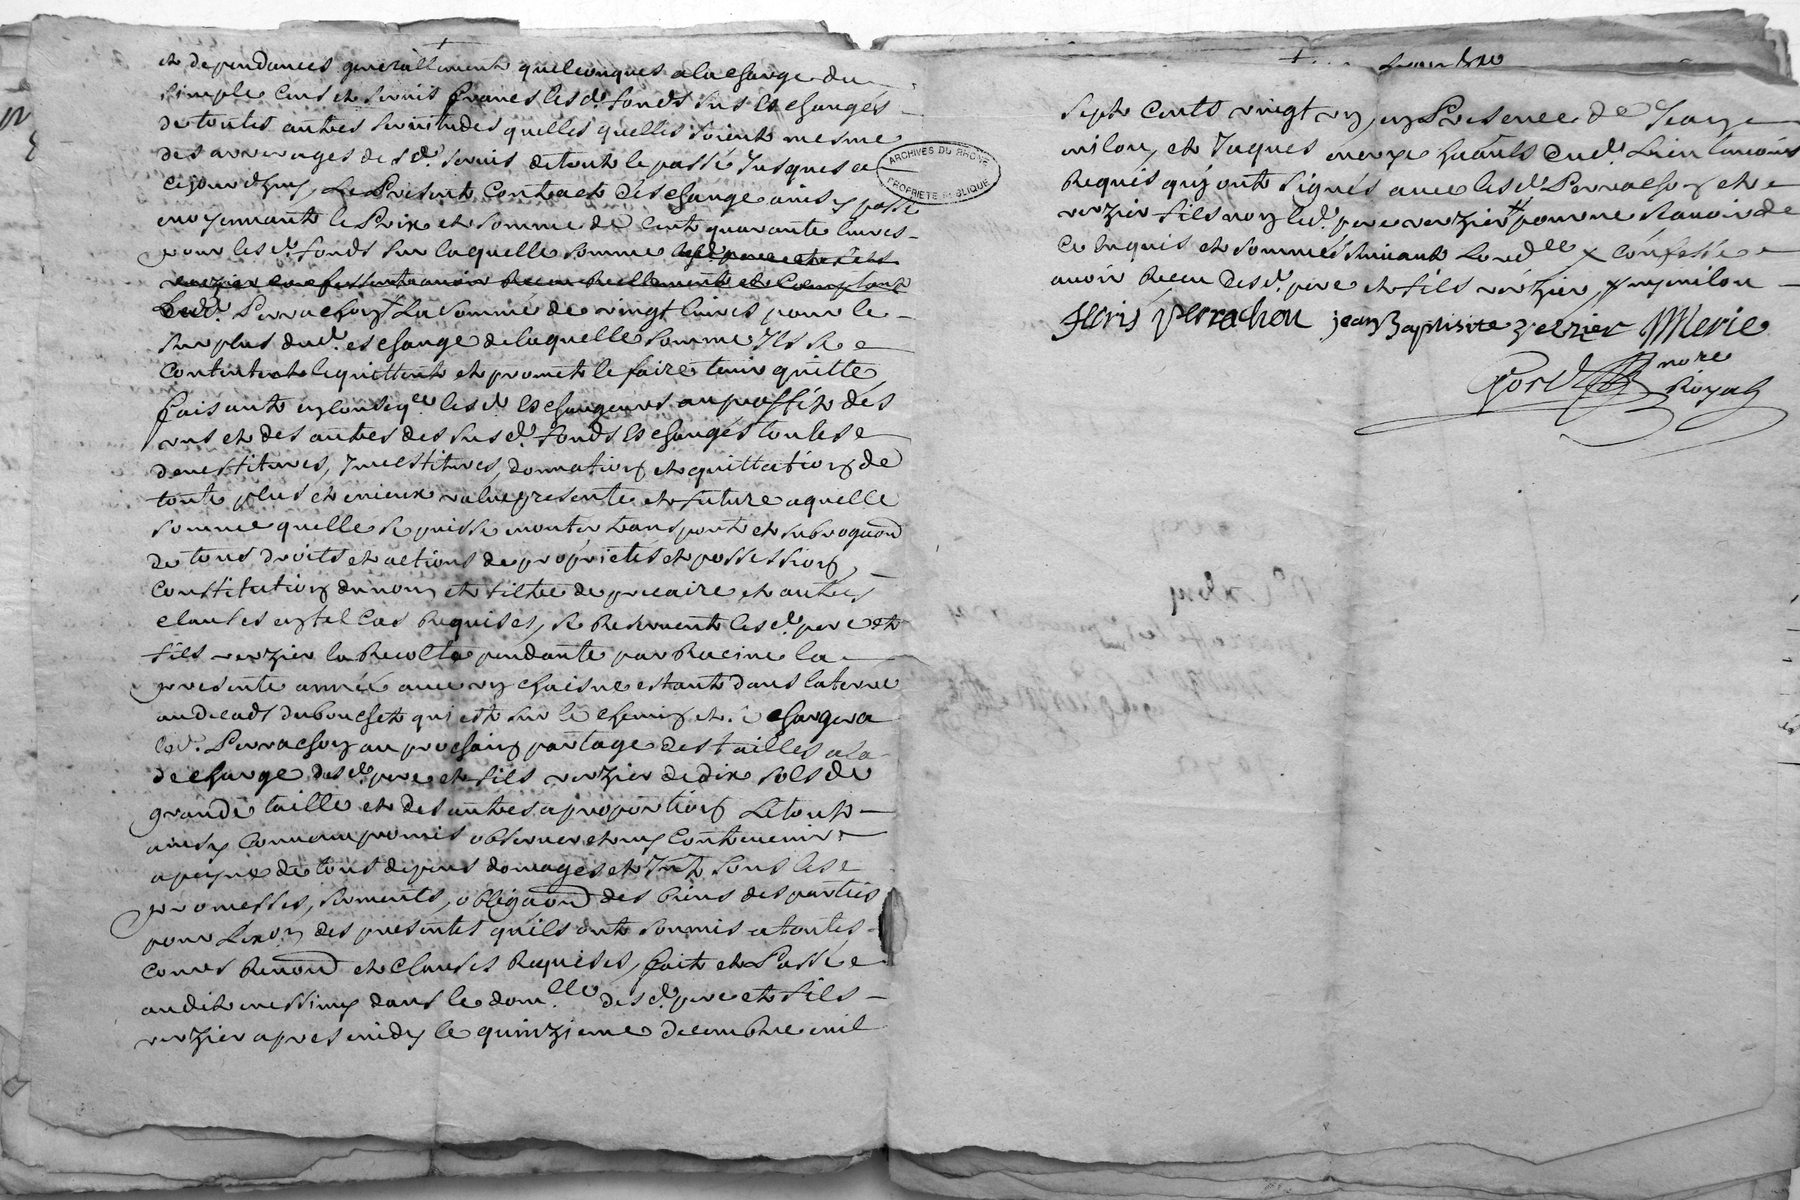 et dependances generallement quelconques a la charge du
simple cens et servis francs lesd. fonds sus eschangés
de toutes autres servitudes quelles quelles soient mesme
des arrerages desd. servis de tout le passé jusques a
ce jourdhuy, le present contract deschange ainsy passé
moyennant le prix et somme de cent quarante livres
pour lesd. fonds sur laquelle somme lesd. pere et fils
verzier confessent avoir receu reellement et comptant
dud. Perrachon x la somme de vingt livres pour le
surplus dud. eschange de laquelle somme ils se
contentent le quittent et promett le faire tenir quitte
faisants en conseq.ce lesd. eschangeurs au proffit des
uns et des autres des susd. fonds eschangés toutes
devestitures, investitures, donnation et quittation de
toute plus et mieux value presente et future a quelle
somme quelle se puisse monter transport et subrogaon
de tous droits et actions de proprietés et possession
constitution de nom et tiltre de precaire et autres
clauses en tal cas requises, se reservent lesd. pere et
fils verzier la recolte pendante par racine la
presente année avec un chaisne estant dans la terre
au dicads du bouchet qui est sur le chemin et chargera
led. Perrachon au prochain partage des tailles a la
decharge desd. pere et fils verzier de dix sols de
grande taille et des autres a proportion le tout
ainsy convenu promis observer et ny contrevenir
a peyne de tous depens domages et int sous les
promesses, serments, obligaon des biens des parties
pour lexon des presentes quils ont soumis a toutes
cours renon et clauses requises, fait et passé
audit messimy dans le dom.lle desd. pere et fils
verzier apres midy le quinzieme decembre mil
ARCHIVES DU RHONE
PROPRIETE PUBLIQUE
sept cents vingt un, en presence de Jean
milon, et Jaques merye habitants dud. lieu temoins
requis qui ont signés avec lesd. Perrachon et
verzier fils non led. pere verzier pour ne scavoir de
ce enquis et sommés suivant lord.ce x confesse
avoir receu desd. pere et fils verzier, ny milon
Fleris perrachon jean Baptiste verzier JMerie
nore
Royal